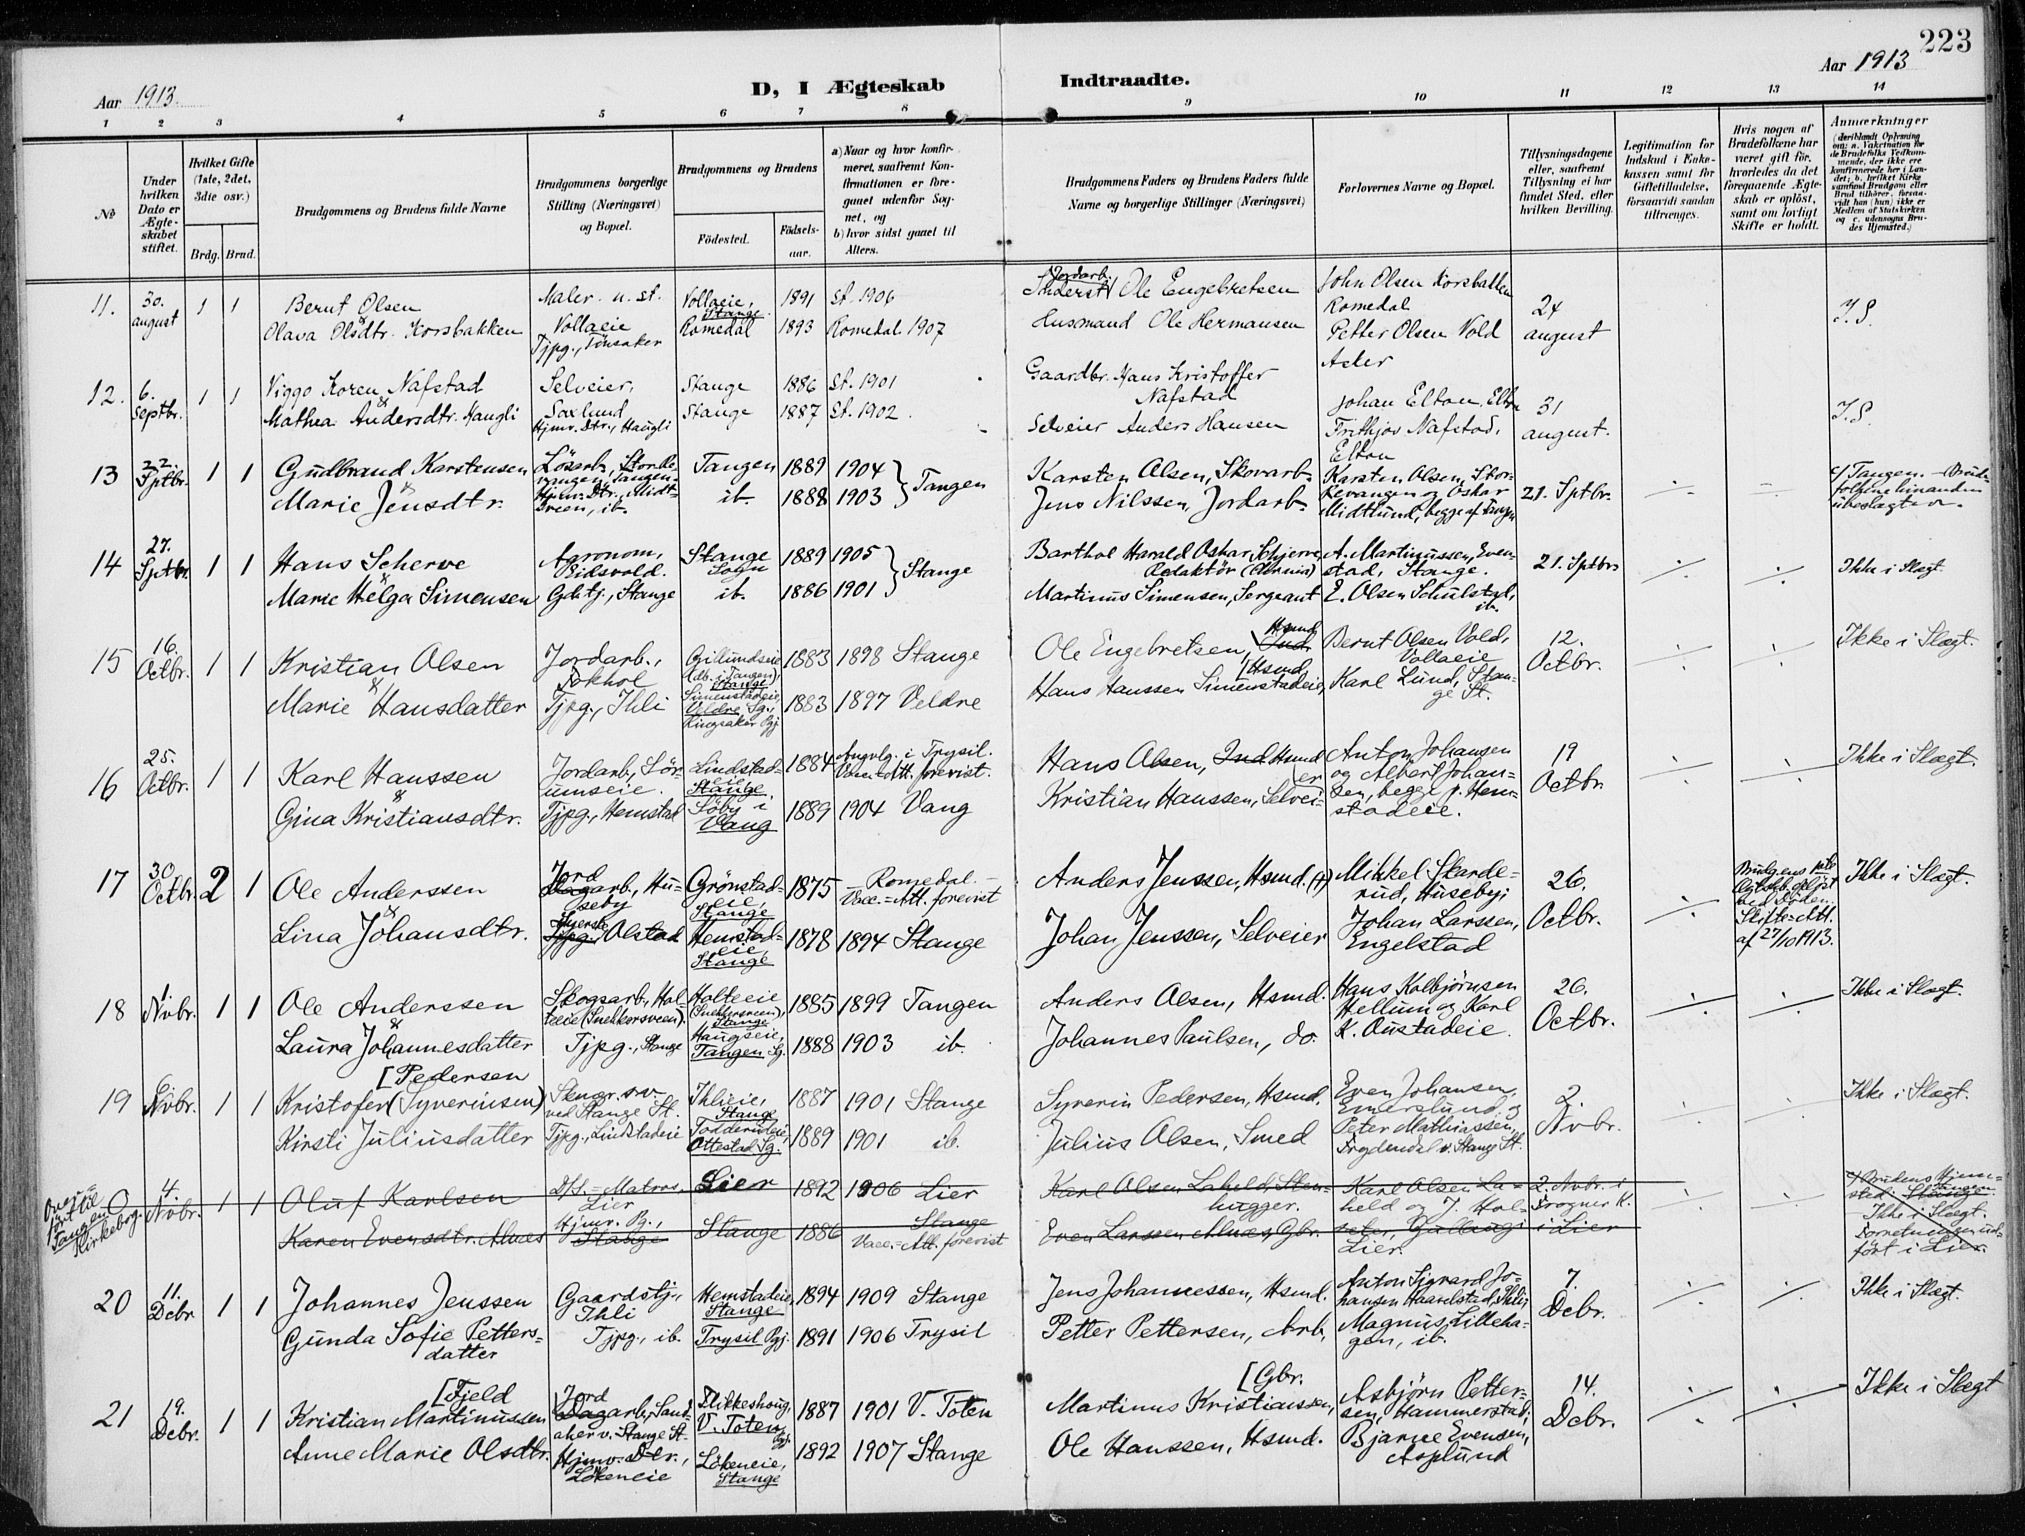 223
Aar 1913.
D, I Ægteskab Indtraadte.
Aar 1913
1 2 3 4 5 6 7 8 9 10 11 12 13 14
№
Under hvilken Dato er Ægteskabet stiftet.
Hvilket Gifte (1ste, 2det, 3die osv.)
Brdg. Brud.
Brudgommens og Brudens fulde Navne
Brudgommens borgerlige Stilling (Næringsvei) og Bopæl.
Brudgommens og Brudens
Födested.
Födselsaar.
a) Naar og hvor konfirmeret, saafremt Konfirmationen er foregaaet udenfor Sognet, og
b) hvor sidst gaaet til Alters.
Brudgommens Faders og Brudens Faders fulde Navne og borgerlige Stillinger (Næringsvei)
Forlovernes Navne og Bopæl.
Tillysningsdagene eller, saafremt Tillysning ei har fundet Sted, efter hvilken Bevilling.
Legitimation for Indskud i Enkekassen samt for Giftetilladelse, forsaavidt saadan tiltrænges.
Hvis nogen af Brudefolkene har været gift för, hvorledes da det foregaaende Ægteskab er oplöst, samt om lovligt Skifte er holdt.
Anmærkninger
11. 30. august 1 1 Bernt Olsen
& Olava Olsdtr. Korsbakken
Maler u. st. Vollaeie
Tjpg.,
Vollaeie, Stange 1891 St. 1906
Romedal 1893 Romedal 1907
Jordarb. Ole Engebretsen
Husmand Ole Hermansen
John Olsen Korsbakken Romedal
Petter Olsen Vold Asker
24 august
I. S.
12. 6. Septbr. 1 1 Viggo Koren Nafstad
& Mathea Andersdtr. Haugli
Selveier, Saxlund
Hjmv. Dtr., Haugli
Stange 1886 St. 1901
Stange 1887 St. 1902.
Gaardbr. Hans Kristoffer Nafstad
Selveier Anders Hansen
Johan Elton, Elton
Frithjov Nafstad, Elton
31 august.
I. S.
13 22. Sptbr. 1 1 Gudbrand Karstensen
& Marie Jensdtr.
Lösarb., Storkevangen, Tangen
Hjmv. Dtr., Midtveen, ib.
Tangen 1889 1904
ib. 1888 1903 } Tangen
Karsten Olsen, Skovarb.
Jens Nilssen, Jordarb.
Karsten Olsen, Storkevangen og Oskar Midtlund, begge af Tangen
21. Sptbr.
c/ Tangen. – Brudefolkene hinanden ubeslægtede.
14 27. Sptbr. 1 1 Hans Scherve
& Marie Helga Simensen
Agronom, Eidsvold.
Gdstj., Stange
Stange Sogn 1889 1905
ib. 1886 1901 } Stange
Barthol Harald Oskar Schjerve, Redaktör
Martinus Simensen, Sergeant
A. Martinussen, Evenstad, Stange.
E. Olsen Schulstad, ib.
21. Sptbr.
Ikke i Slægt.
15 16. Octbr. 1 1 Kristian Olsen
& Marie Hansdatter
Jordarb., Tokhol
Tjpg., Ihli
Gillundseie (db. i Tangen), Stange 1883 1898 Stange
Simenstadeie, Veldre Sg., Ringsaker Pgj. 1883 1897 Veldre
Ole Engebretsen, Hsmd
Hans Hanssen Simenstadeie, [Hsmd.
Bernt Olsen Vold, Vollaeie
Karl Lund, Stange St.
12. Octbr.
Ikke i Slægt.
16 25. Octbr. 1 1 Karl Hanssen
& Gina Kristiansdtr.
Jordarb., Sörumseie.
Tjpg., Hemstad
Lindstadeie Stange, 1884 i Trysil. Vacc.-Att. forevist.
Söby i Vang 1889 1904 Vang
Hans Olsen, Ind Hsmd
Kristian Hanssen, Selveier
Anton Johansen og Albert Johansen, begge p. Hemstadeie.
19 Octbr.
Ikke i Slægt.
17 30 Octbr. 2 1 Ole Anderssen
& Lina Johansdtr.
Jord Dagarb., Huseby
Tjpg., Alstad
Grönstadeie, Stange 1875 – Romedal. – Vacc.=Att. forevist
Hemstadeie, Stange 1878 1894 Stange
Anders Jenssen, Hsmd. (+)
Johan Jenssen, Selveier
Mikkel Skarderud, Huseby;
Johan Larssen, Engelstad
26. Octbr.
Brudgens Ægtskb. oplöst ved Döden. Skifte=Att. af 27/10 1913.
Ikke i Slægt.
18 1 Nvbr. 1 1 Ole Anderssen
& Laura Johannesdatter
Skogsarb., Holteeie (Snekkersveen).
Tjpg., Stange
Holteeie (Snekkersveen), Stange 1885 1899 Tangen
Haugseie, Tangen Sg. 1888 1903 ib.
Anders Olsen, Hsmd.
Johannes Paulsen, do.
Hans Kolbjörnsen Hellum og Karl K. Oustadeie.
26. Octbr.
Ikke i Slægt.
19 Nvbr. 1 1 [Pedersen
Kristofer (Syverinsen)
Kirsti Juliusdatter
ved Stange St.
Tjpg., Lindstadeie
Ihlieie, Stange 1887 1901 Stange
Ottestad Sg. 1889 1901 ib.
Syverin Pedersen, Hsmd.
Julius Olsen, Smed
Even Johansen, Emerslund, og
Peter Mathiassen, Frydendal v. Stange St.
2. Nvbr.
Ikke i Slægt.
Overfört til Tangen Kirkebog.
4. Nvbr. 1 1 Oluf Karlsen
Karen Evensdtr. Alnæs
D/S.=Matros, Lier
Hjmv. Pg., Stange
Lier 1892 1906 Lier
Stange 1886 Stange Vacc.=Att. forevist
Karl Olsen Laheld, Stenhugger.
Even Larssen Alnæs, Gbr.
Karl Olsen Laheld og J. Gullaug i Lier.
2. Nvbr. i Frogner K. i Lier
c/ Brudens Hjemsted: Stange
Ikke i Slægt.
Forretningen udfört i Lier.
20 11. Debr. 1 1 Johannes Jenssen
Gunda Sofie Pettersdatter
Gaardstj., Ihli
Tjpg., ib.
Hemstadeie, Stange 1894 1909 Stange
Trysil Pgj. 1891 1906 Trysil
Jens Johannessen, Hsmd.
Petter Pettersen, Arb.
Anton Sigvard Johansen Haavelstad, Ihli;
Magnus Lillehagen, ib.
7. Debr.
Ikke i Slægt.
21 19. Debr. 1 1 [Fjeld
Kristian Martinussen
Anne Marie Olsdtr.
Jord Dagarb., Sandaker v. Stange St.
Hjmv. Dtr., Lökeneie
Flikkeshoug, V. Toten Pgj. 1887 1901 V. Toten
Lökeneie, Stange 1892 1907 Stange
Martinus Kristianssen, [Gbr.
Ole Hanssen, Hsmd.
Asbjörn Pettersen, Hammerstad;
Bjarne Evensen, Asplund
14. Debr.
Ikke i Slægt